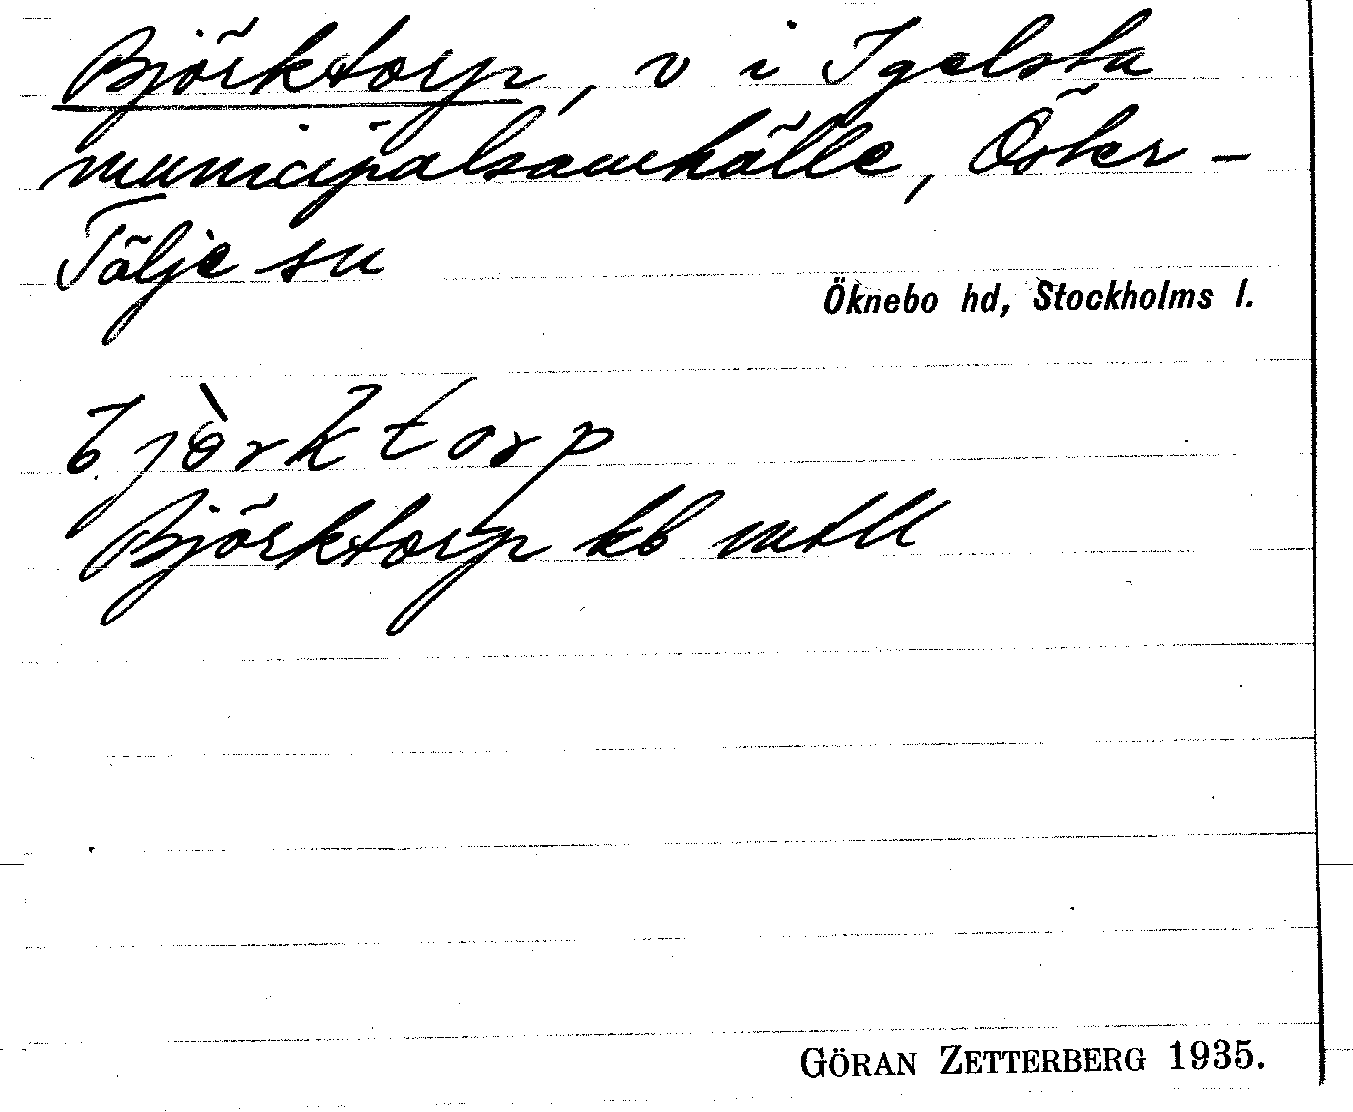 Björktorp, v i Igelsta
municipalsamhälle, Öster-
Tälje sn
Öknebo hd, Stockholms l.
bjòrktorp
Björktorp kb mtll
GÖRAN ZETTERBERG 1935.